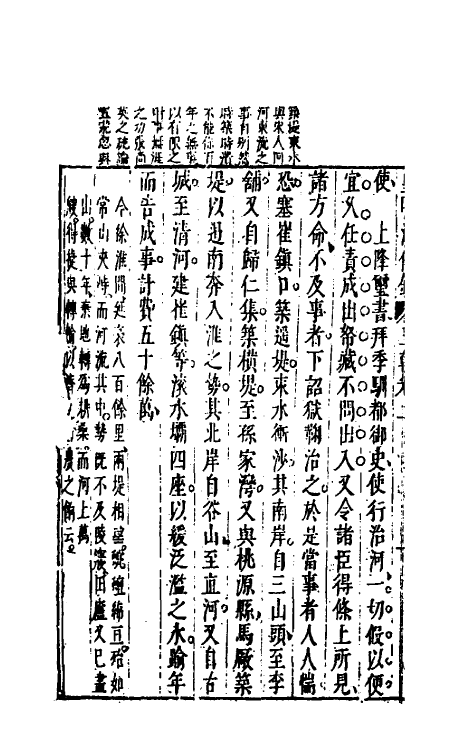 使上降璽書拜季馴都御史使行治河一切假以便
宜久任責成出帑藏不問出入又令諸臣得條上所見
諸方命不及事者下詔獄鞠治之於是當事者人人惴
恐塞崔鎮口築遥堤束水衝沙其南岸自三山頭至李
舖又自歸仁集築橫堤至孫家灣又與桃源縣馬厰築
堤以遏南奔入淮之勢其北岸自谷山至直河又自古
城至清河建崔鎮等滾水壩四座以緩泛濫之水踰年
而告成事計費五十餘萬
今徐淮間延袤八百餘里兩堤相望蜿蟺綿亘殆如
常山夾峙而河流其中勢既不及陵寢田廬又已盡
山數十年棄地轉為耕桑而河上萬
艘得捷與轉輸以
築堤束水
與宋人同
河東流之
事自列然
時築時潰
不能保百
年之無患
以有限之
財事無涯
之功張尚
英之疏論